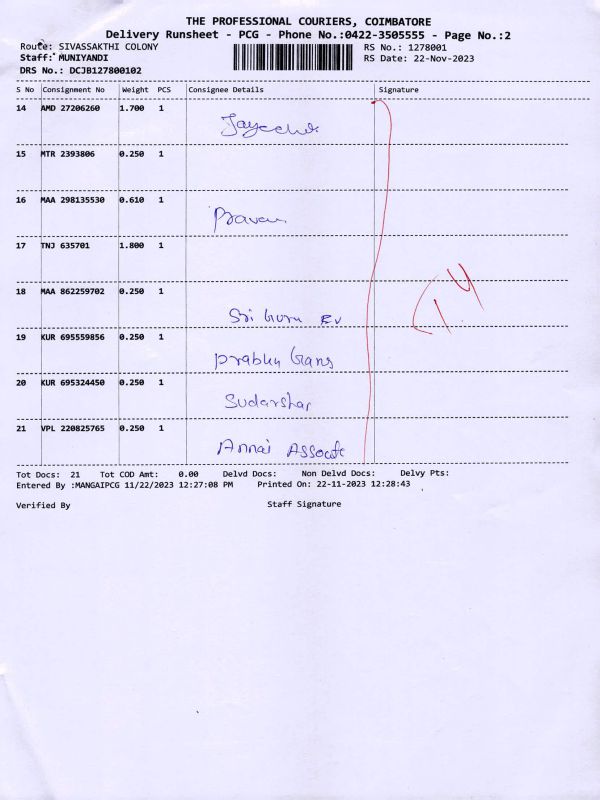 THE PROFESSIONAL COURIERS, COIMBATORE
Delivery Runsheet - PCG - Phone No.:0422-3505555 - Page No.:2
Route: SIVASSAKTHI COLONY RS No.: 1278001
Staff: MUNIYANDI RS Date: 22-Nov-2023
DRS No.: DCJB127800102
S No Consignment No Weight PCS Consignee Details Signature
14 AMD 27206260 1.700 1
15 MTR 2393806 0.250 1
16 MAA 298135530 0.610 1
Pravan
17 TNJ 635701 1.800 1
18 MAA 862259702 0.250 1
Sri Guru EV
19 KUR 695559856 0.250 1
Prabhu Gans
20 KUR 695324450 0.250 1
Sudarshan
21 VPL 220825765 0.250 1
Annai Assocate
Tot Docs: 21 Tot COD Amt: 0.00 Delvd Docs: Non Delvd Docs: Delvy Pts:
Entered By :MANGAIPCG 11/22/2023 12:27:08 PM Printed On: 22-11-2023 12:28:43
Verified By Staff Signature